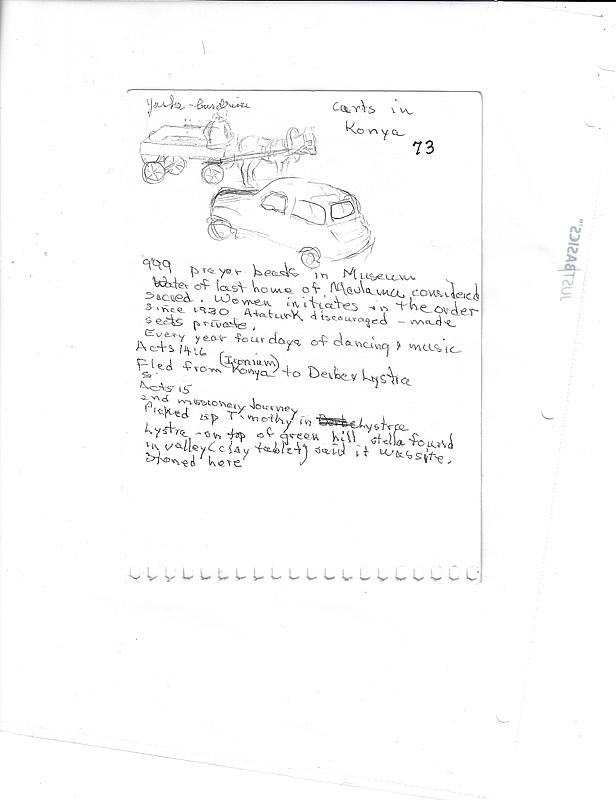 carts in
Konya
73
999 prayer beads in Museum
Water of last home of Mavlana considered
sacred. Women initiates in the order
since 1930 Ataturk discouraged - made
sects private.
Every year four days of dancing & music
Acts 14:6
(Iconium)
Fled from Konya to Derbe & Lystra
Acts 15
2nd missionary Journey
Picked up Timothy in Derbe Lystra
Lystra - on top of green hill stella found
in valley (clay tablet) said it was site.
Stoned here
JUSTBASICS